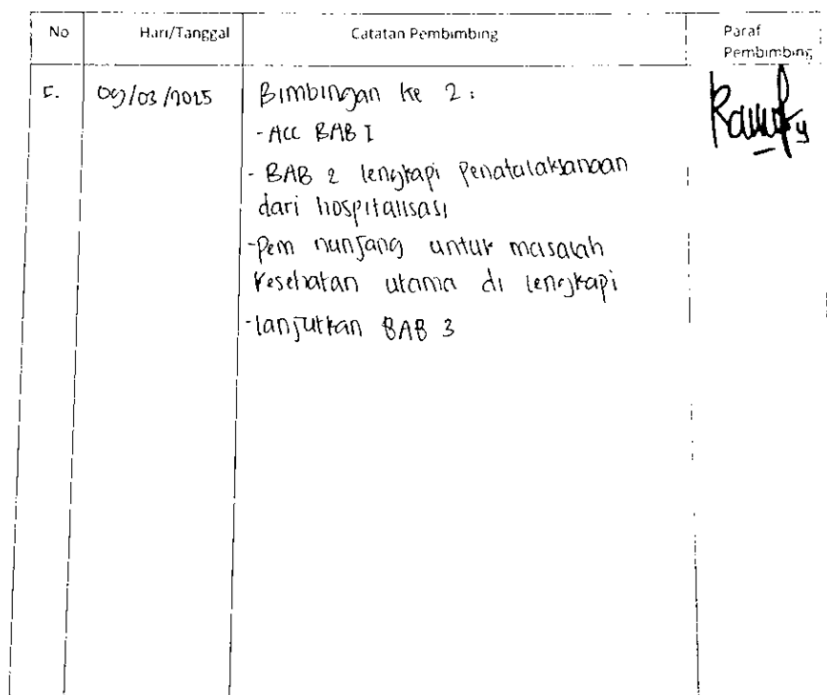 No Hari/Tanggal Catatan Pembimbing Paraf
Pembimbing
09/03/2025 Bimbingan ke 2:
- ACC BAB I
- BAB 2 lengkapi penatalaksanaan
dari hospitalisasi
- pem nunjang untuk masalah
kesehatan utama di lengkapi
- lanjutkan BAB 3